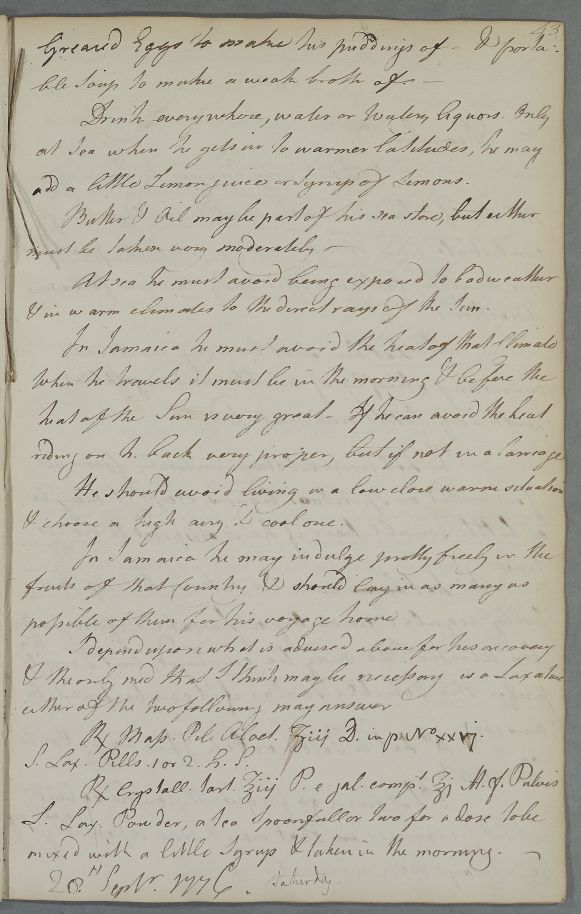 43
Greased Eggs to make his puddings of — & porta=
ble Soup to make a weak broth of —
Drink everywhere, water or watery liquors. Only
at Sea when he gets in to warmer latitudes, he may
add a little Lemon juice or Syrup of Lemons.
Butter & Oil may be part of his sea store, but either
must be taken very moderately —
At sea he must avoid being exposed to bad weather
& in warm climates to the direct rays of the Sun.
In Jamaica he must avoid the heat of that Climate
When he travels it must be in the morning & before the
heat of the Sun is very great. If he can avoid the heat
riding on h. back very proper, but if not in a Carriage
He should avoid living in a low close warm situation
& choose a high airy & cool one.
In Jamaica he may indulge pretty freely in the
fruits of that Country & should lay in as many as
possible of them for his voyage home
I depend upon what is advised above for his recovery
& the only med that I think may be necessary is a Laxative
either of the two following may answer
℞ Mass. Pil. Aloet. ʒiij D. in p. No xxvj.
S. Lax. Pills. 1 or 2. h. S.
℞ Crystall. tart. ʒiij P. e jal. compt ʒj M. f. Pulvis
S. Lax. Powder, a tea Spoonfull or two for a dose to be
mixed with a little Syrup & taken in the morning. —
28th Septr. 1776. Saturday.